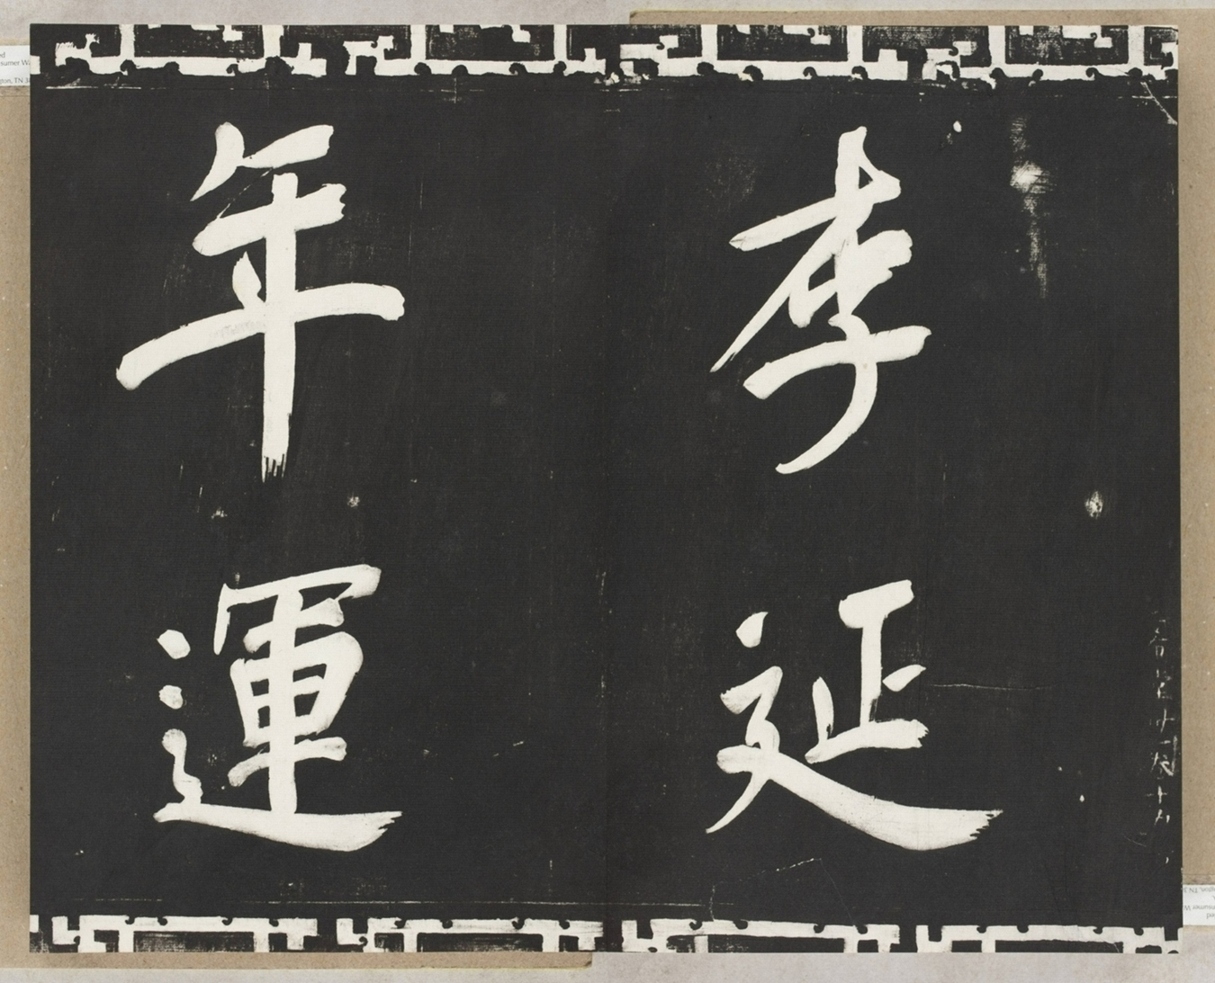 李延
年運